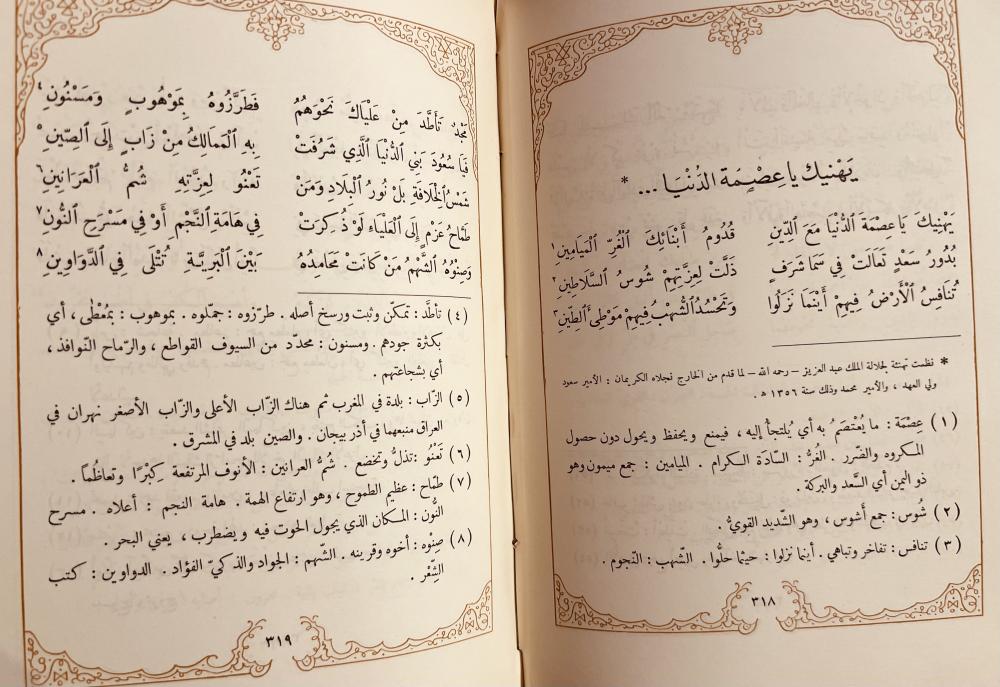 يَهْنيك يا عِصْمَة الدُنْيَا ... *
يَهْنِيكَ يَا عِصْمَةَ الدُّنْيَا مَعَ الدِّينِ قُدُومُ أَبْنَائِكَ الْغُرِّ الْمَيَامِينِ ١
بُدُورُ سَعْدٍ تَعَالَتْ فِي سَمَا شَرَفٍ ذَلَّتْ لِعِزَّتِهِمْ شُوسُ السَّلَاطِينِ ٢
تُنَافِسُ الْأَرْضُ فِيهِمْ أَيْنَمَا نَزَلُوا وَتَحْسُدُ الشُّهْبُ فِيهِمْ مَوْطِئَ الطِّينِ ٣
* نظمت تهنئة لجلالة الملك عبد العزيز – رحمه الله – لما قدم من الخارج نجلاه الكريمان : الأمير سعود
ولي العهد ، والأمير محمد وذلك سنة ١٣٥٦ ه .
(١) عِصْمَة : ما يُعْتصَمُ به أي يُلتجأ إليه ، فيمنع ويحفظ ويحول دون حصول
المكروه والضّرر . الغُرُّ : السّادَة الكرام . الميامين : جمع ميمون وهو
ذو اليمن أي السَّعد والبركة .
(٢) شُوس : جمع أشوس ، وهو الشّديد القويُّ .
(٣) تنافس : تفاخر وتباهي . أينما نزلوا : حيثما حلُّوا . الشّهب : النّجوم .
٣١٨
مَجْدٌ تَأَطَّدَ مِنْ عَلْيَاكَ نَحْوَهُمُ فَطَرَّزُوهُ بِمَوْهُوبٍ وَمَسْنُونِ ٤
فَيَا سُعُودَ بَنِي الدُّنْيَا الَّذِي شَرُفَتْ بِهِ الْمَمَالِكُ مِنْ زَابٍ إِلَى الصِّينِ ٥
شَمْسُ الْخِلَافَةِ بَلْ نُورُ الْبِلَادِ وَمَنْ تَعْنُو لِعِزَّتِهِ شُمُّ الْعَرَانِينِ ٦
طَمَّاحُ عَزْمٍ إِلَى الْعَلْيَاءِ لَوْ ذُكِرَتْ فِي هَامَةِ النَّجْمِ أَوْ فِي مَسْرَحِ النُّونِ ٧
وَصِنْوُهُ الشَّهْمُ مَنْ كَانَتْ مَحَامِدُهُ بَيْنَ الْبَرِيَّةِ تُتْلَى فِي الدَّوَاوِينِ ٨
(٤) تأطّد : تمكّن وثبت ورسخ أصله . طرّزوه : جمّلوه . بموهوب : بمُعْطًى ، أي
بكثرة جودهم . ومسنون : محدّد من السيوف القواطع ، والرّماح النّوافذ ،
أي بشجاعتهم .
(٥) الزّاب : بلدة في المغرب ثم هناك الزّاب الأعلى والزّاب الأصغر نهران في
العراق منبعهما في أذر بيجان . والصين بلد في المشرق .
(٦) تَعْنُو : تذلُّ وتخضع . شُمُّ العرانين : الأنوف المرتفعة كِبْرًا وتعاظُماً .
(٧) طمّاح : عظيم الطموح ، وهو ارتفاع الهمة . هامة النجم : أعلاه . مسرح
النُّون : المكان الذي يجول الحوت فيه ويضطرب ، يعني البحر .
(٨) صِنْوه : أخوه وقرينه . الشّهم : الجواد والذكيّ الفؤاد . الدواوين : كتب
الشِّعْر .
٣١٩